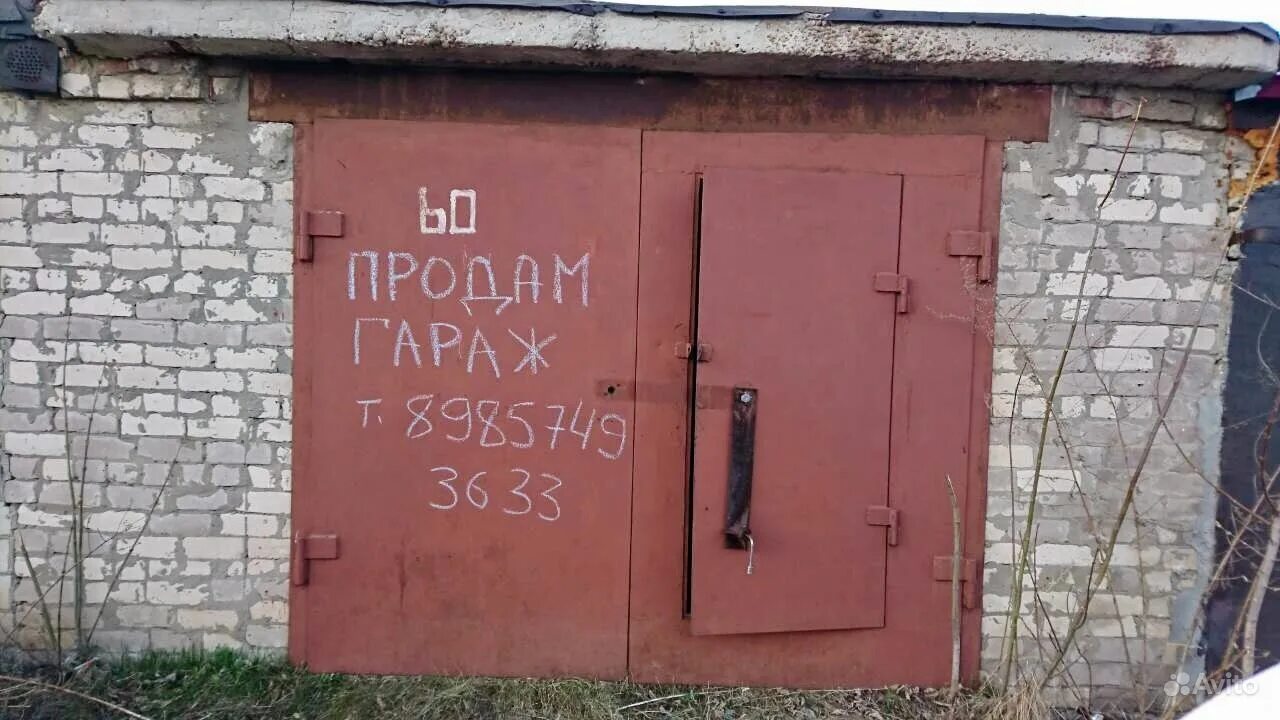 60
ПРОДАМ
ГАРАЖ
т. 8985749
3633
Avito